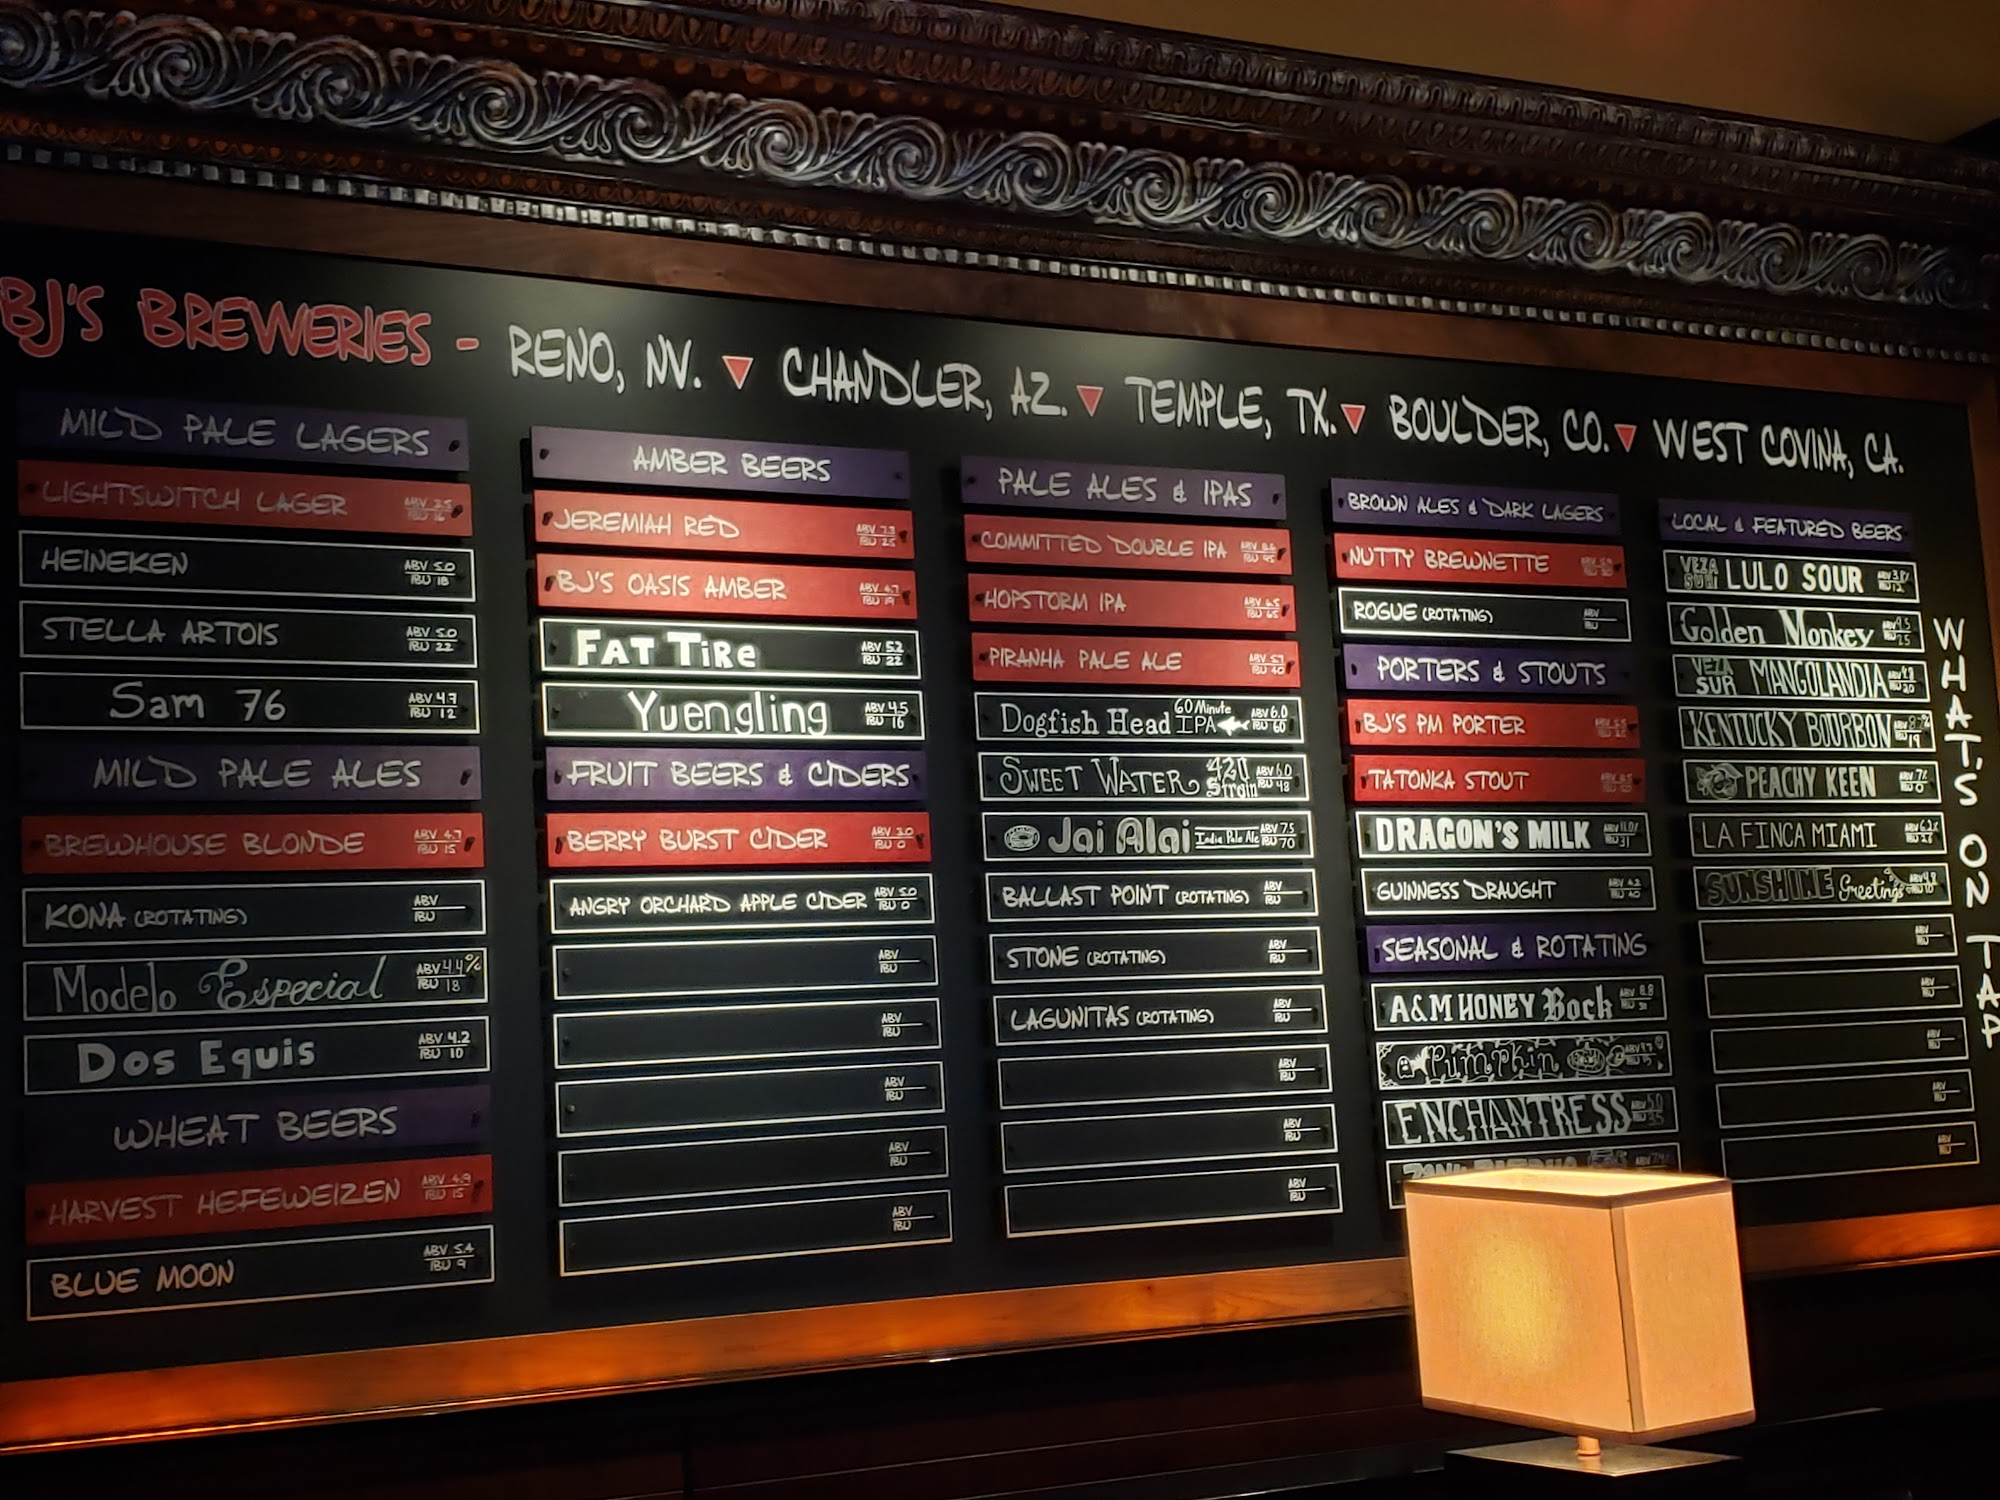 BJ'S BREWERIES - RENO, NV. ▼ CHANDLER, AZ. ▼ TEMPLE, TX. ▼ BOULDER, CO. ▼ WEST COVINA, CA.
MILD PALE LAGERS
LIGHTSWITCH LAGER ABV 3.5 IBU 16
HEINEKEN ABV 5.0 IBU 18
STELLA ARTOIS ABV 5.0 IBU 22
Sam 76 ABV 4.7 IBU 12
MILD PALE ALES
BREWHOUSE BLONDE ABV 4.7 IBU 15
KONA (ROTATING) ABV IBU
Modelo Especial ABV 4.4% IBU 18
Dos Equis ABV 4.2 IBU 10
WHEAT BEERS
HARVEST HEFEWEIZEN ABV 4.9 IBU 15
BLUE MOON ABV 5.4 IBU 9
AMBER BEERS
JEREMIAH RED ABV 7.3 IBU 25
BJ'S OASIS AMBER ABV 4.7 IBU 19
FAT TIRE ABV 5.2 IBU 22
Yuengling ABV 4.5 IBU 16
FRUIT BEERS & CIDERS
BERRY BURST CIDER ABV 3.0 IBU 0
ANGRY ORCHARD APPLE CIDER ABV 5.0 IBU 0
ABV IBU
ABV IBU
ABV IBU
ABV IBU
ABV IBU
PALE ALES & IPAS
COMMITTED DOUBLE IPA ABV IBU
HOPSTORM IPA ABV 6.5 IBU 65
PIRANHA PALE ALE ABV 5.7 IBU 40
Dogfish Head 60 Minute IPA ABV 6.0 IBU 60
SWEET WATER 420 Strain ABV 6.0 IBU 48
Jai Alai India Pale Ale ABV 7.5 IBU 70
BALLAST POINT (ROTATING) ABV IBU
STONE (ROTATING) ABV IBU
LAGUNITAS (ROTATING) ABV IBU
ABV IBU
ABV IBU
ABV IBU
BROWN ALES & DARK LAGERS
NUTTY BREWNETTE ABV IBU
ROGUE (ROTATING) ABV IBU
PORTERS & STOUTS
BJ'S PM PORTER ABV IBU
TATONKA STOUT ABV IBU
DRAGON'S MILK ABV 11.0% IBU 31
GUINNESS DRAUGHT ABV 4.2 IBU 40
SEASONAL & ROTATING
A&M HONEY Bock ABV IBU
Pumpkin ABV IBU
ENCHANTRESS ABV 5.0 IBU 35
LOCAL & FEATURED BEERS
VEZA SUR LULO SOUR ABV IBU
Golden Monkey ABV 9.5 IBU 25
VEZA SUR MANGOLANDIA ABV 4.8 IBU 20
KENTUCKY BOURBON ABV IBU 19
PEACHY KEEN ABV 7% IBU 0
LA FINCA MIAMI ABV 6.2% IBU
SUNSHINE Greetings ABV 4.8 IBU 10
ABV IBU
ABV IBU
ABV IBU
ABV IBU
ABV IBU
WHAT'S ON TAP